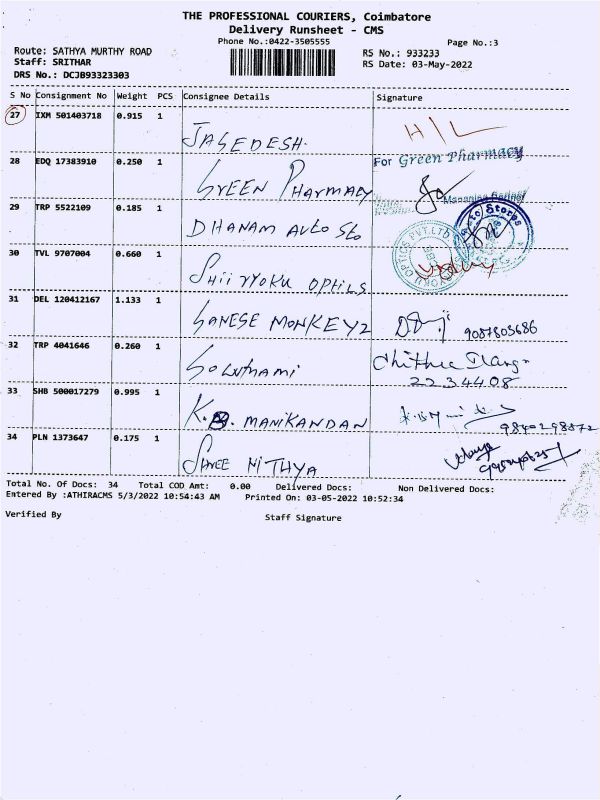 THE PROFESSIONAL COURIERS, Coimbatore
Delivery Runsheet - CMS
Phone No.:0422-3505555
Page No.:3
Route: SATHYA MURTHY ROAD
RS No.: 933233
Staff: SRITHAR
RS Date: 03-May-2022
DRS No.: DCJB93323303
S No Consignment No Weight PCS Consignee Details Signature
27 IXM 501403718 0.915 1
JAGEDESH. H/L
28 EDQ 17383910 0.250 1 For Green Pharmacy
GREEN PHARMACY
29 TRP 5522109 0.185 1
DHANAM AUTO STO
30 TVL 9707004 0.660 1
SHII RYOKU OPHILS
31 DEL 120412167 1.133 1
SANESE MONKEYZ 9087805686
32 TRP 4041646 0.260 1
2234408
33 SHB 500017279 0.995 1
K.B. MANIKANDAN
34 PLN 1373647 0.175 1
SHREE NITHYA
Total No. Of Docs: 34 Total COD Amt: 0.00 Delivered Docs: Non Delivered Docs:
Entered By :ATHIRACMS 5/3/2022 10:54:43 AM Printed On: 03-05-2022 10:52:34
Verified By Staff Signature